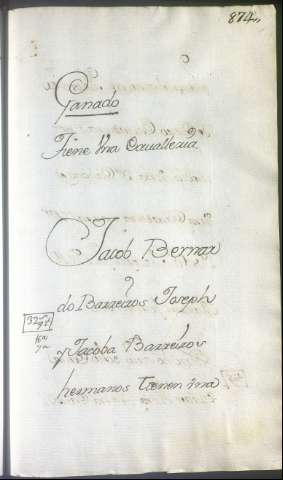 874,,
Ganado
Tiene Vna Cavalleria
Jacob Bernar
do Barreiros Joseph
y Jacoba Barreiros
hermanos tienen vna